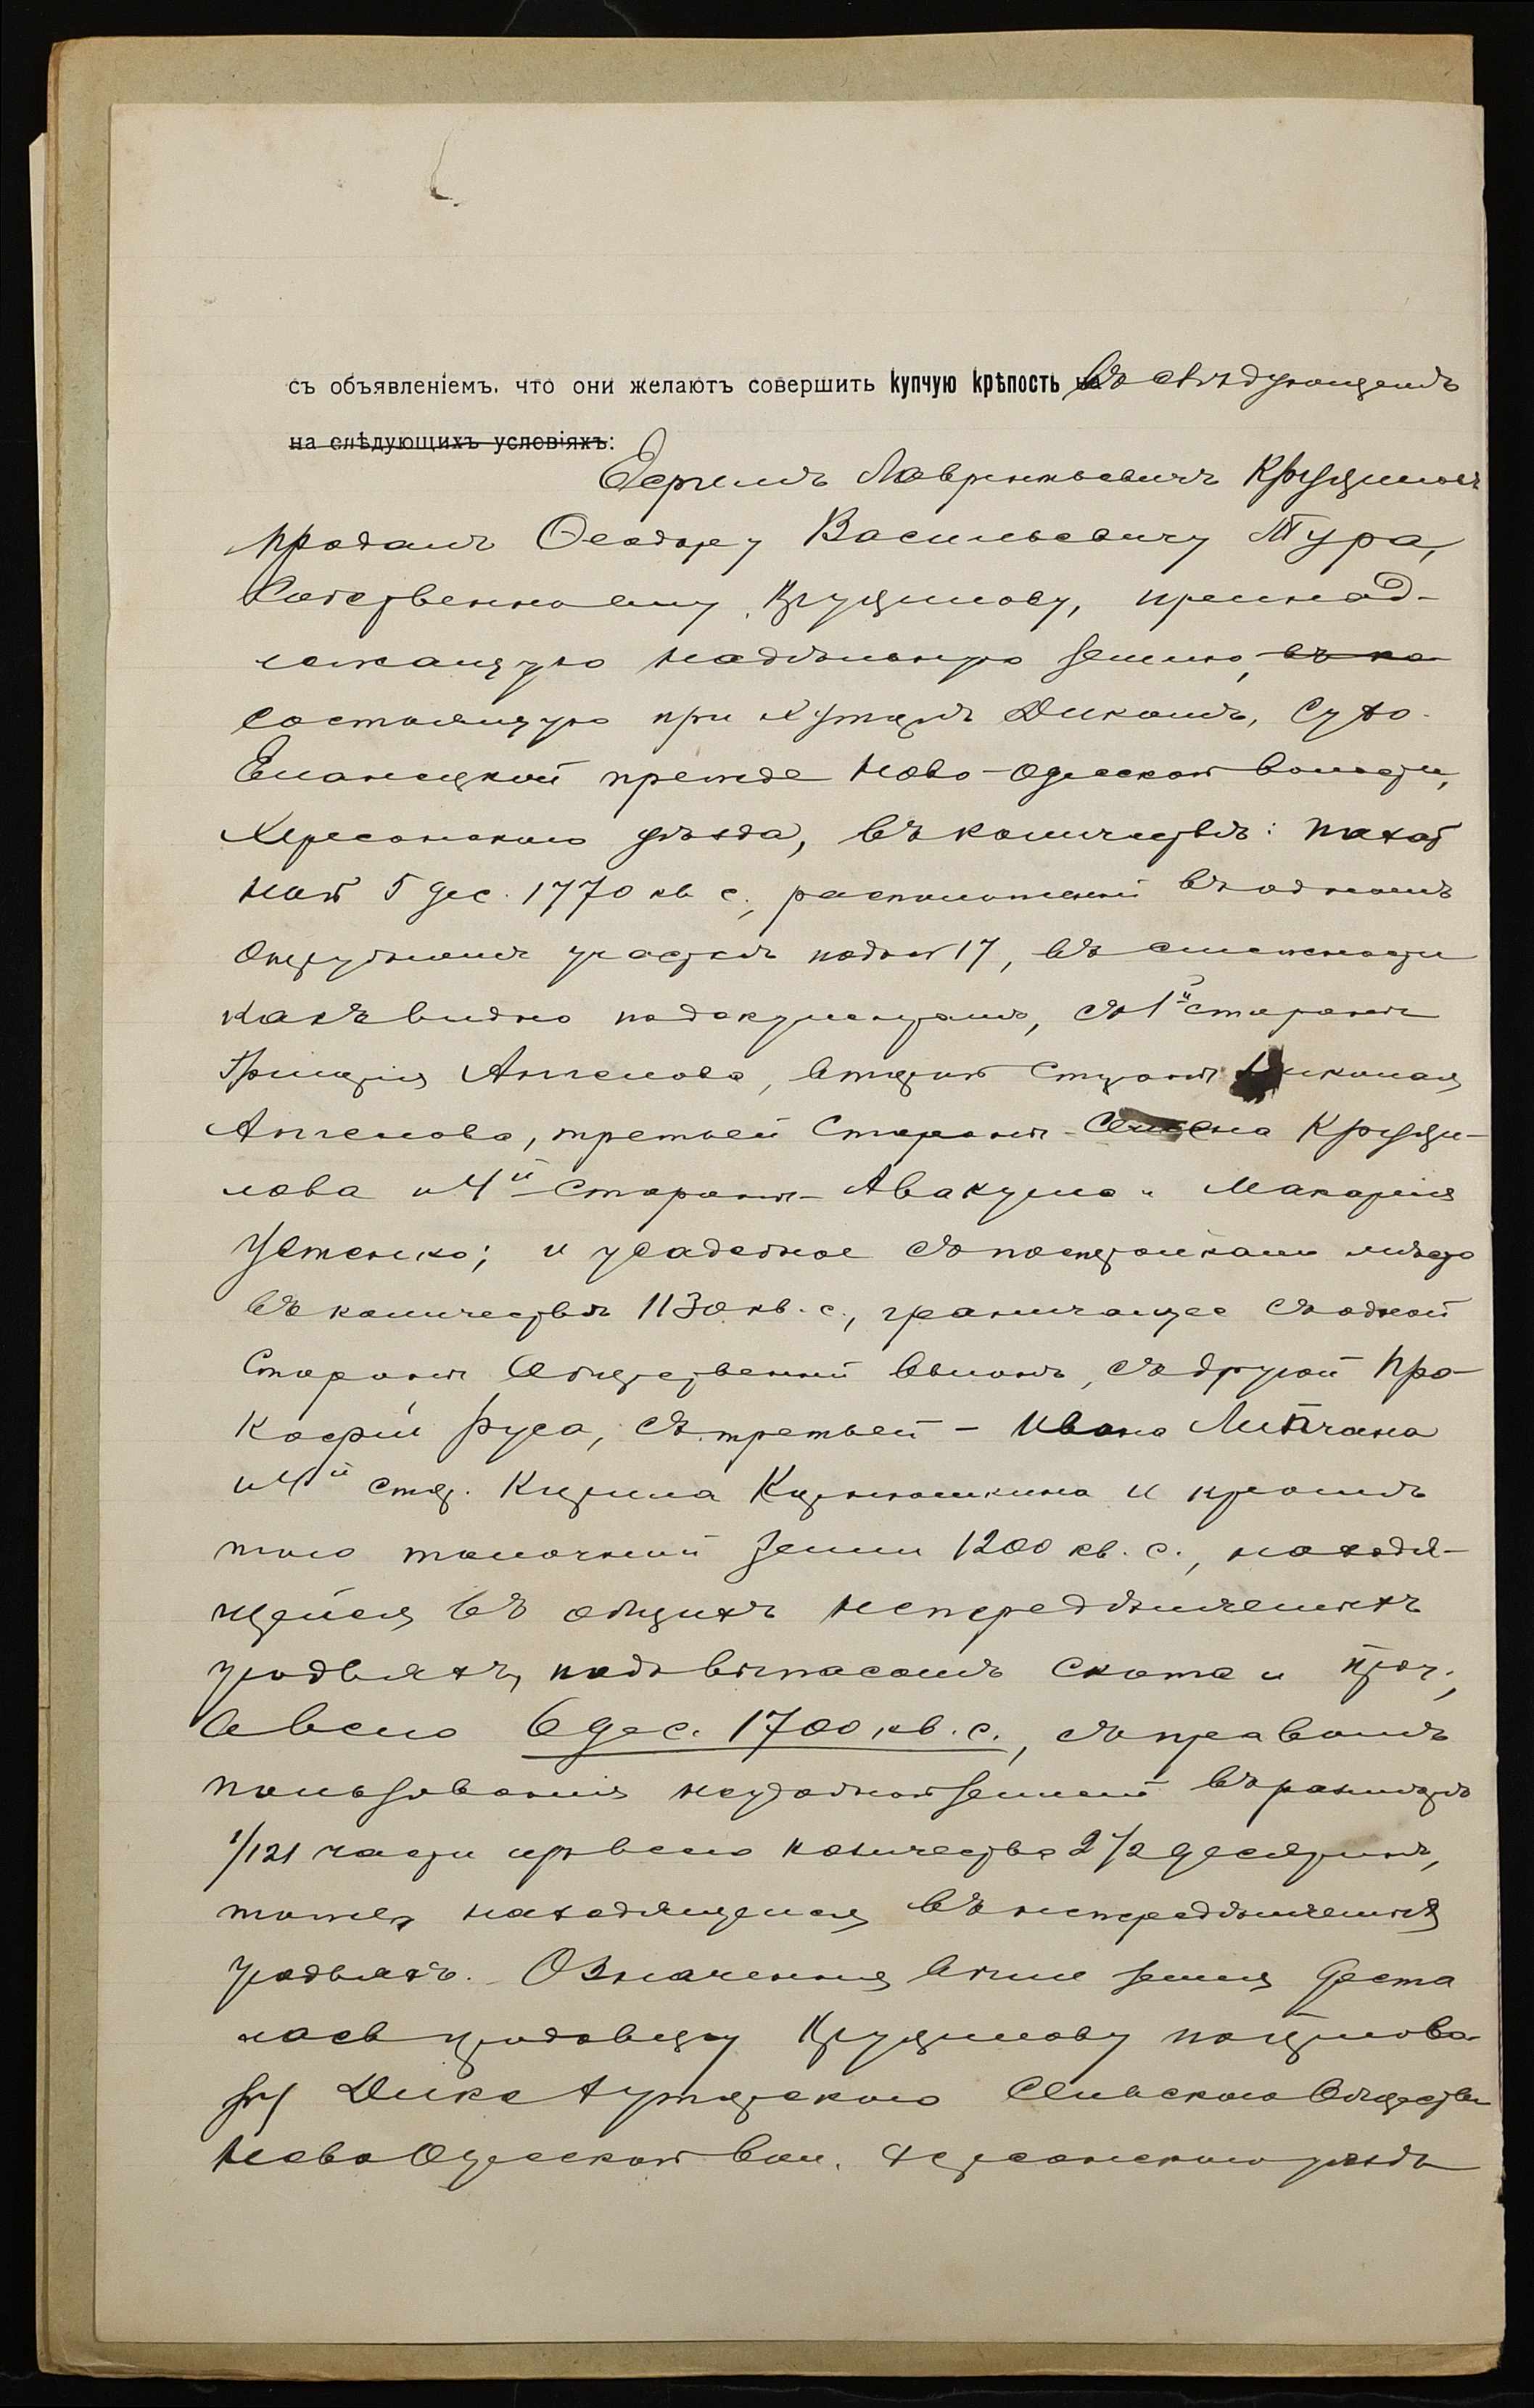 съ объявленіемъ, что они желаютъ совершить купчую крѣпость въ слѣдующемъ
на слѣдующихъ условіяхъ:
Лаврентьевичъ
продалъ Ѳеодору Васильевичу Тура,
собственную, принад-
лежащую надѣльную землю, въ ко
состоящую при хуторѣ Дикомъ, Сухо-
Еланецкой прежде Ново-Одесской волости,
Херсонскаго уѣзда, въ количествѣ: пахот
ной 5 дес. 1770 кв. с., расположенной въ одномъ
отрубномъ участкѣ подъ № 17, въ смежности
какъ видно по документамъ, съ 1й стороны
Григорія Ангелова, второй стороны Николая
Ангелова, третьей стороны Семена Крущи-
лова и 4й стороны Авакума и Макарія
Устенко; и усадебное съ постройками мѣсто
въ количествѣ 1130 кв. с., граничащее съ одной
стороны общественный выгонъ, съ другой Про-
кофій Руса, съ третьей – Ивана Липчана
и 4й стор. Кирила и кромѣ
того толочной земли 1200 кв. с., находя-
щейся въ общихъ непередѣляемыхъ
угодьяхъ, подъ выпасомъ скота и проч.,
а всего 6 дес. 1700 кв. с., съ правомъ
пользованія неудобной землей въ размѣрѣ
1/121 части изъ всего количества 2 1/2 десятинъ,
тоже находящемся въ непередѣляемыхъ
угодьяхъ. Означенная выше земля доста
лась продавцу по приговору
Дико Хуторскаго Сельскаго Общества
Ново Одесской вол. Херсонскаго уѣзда